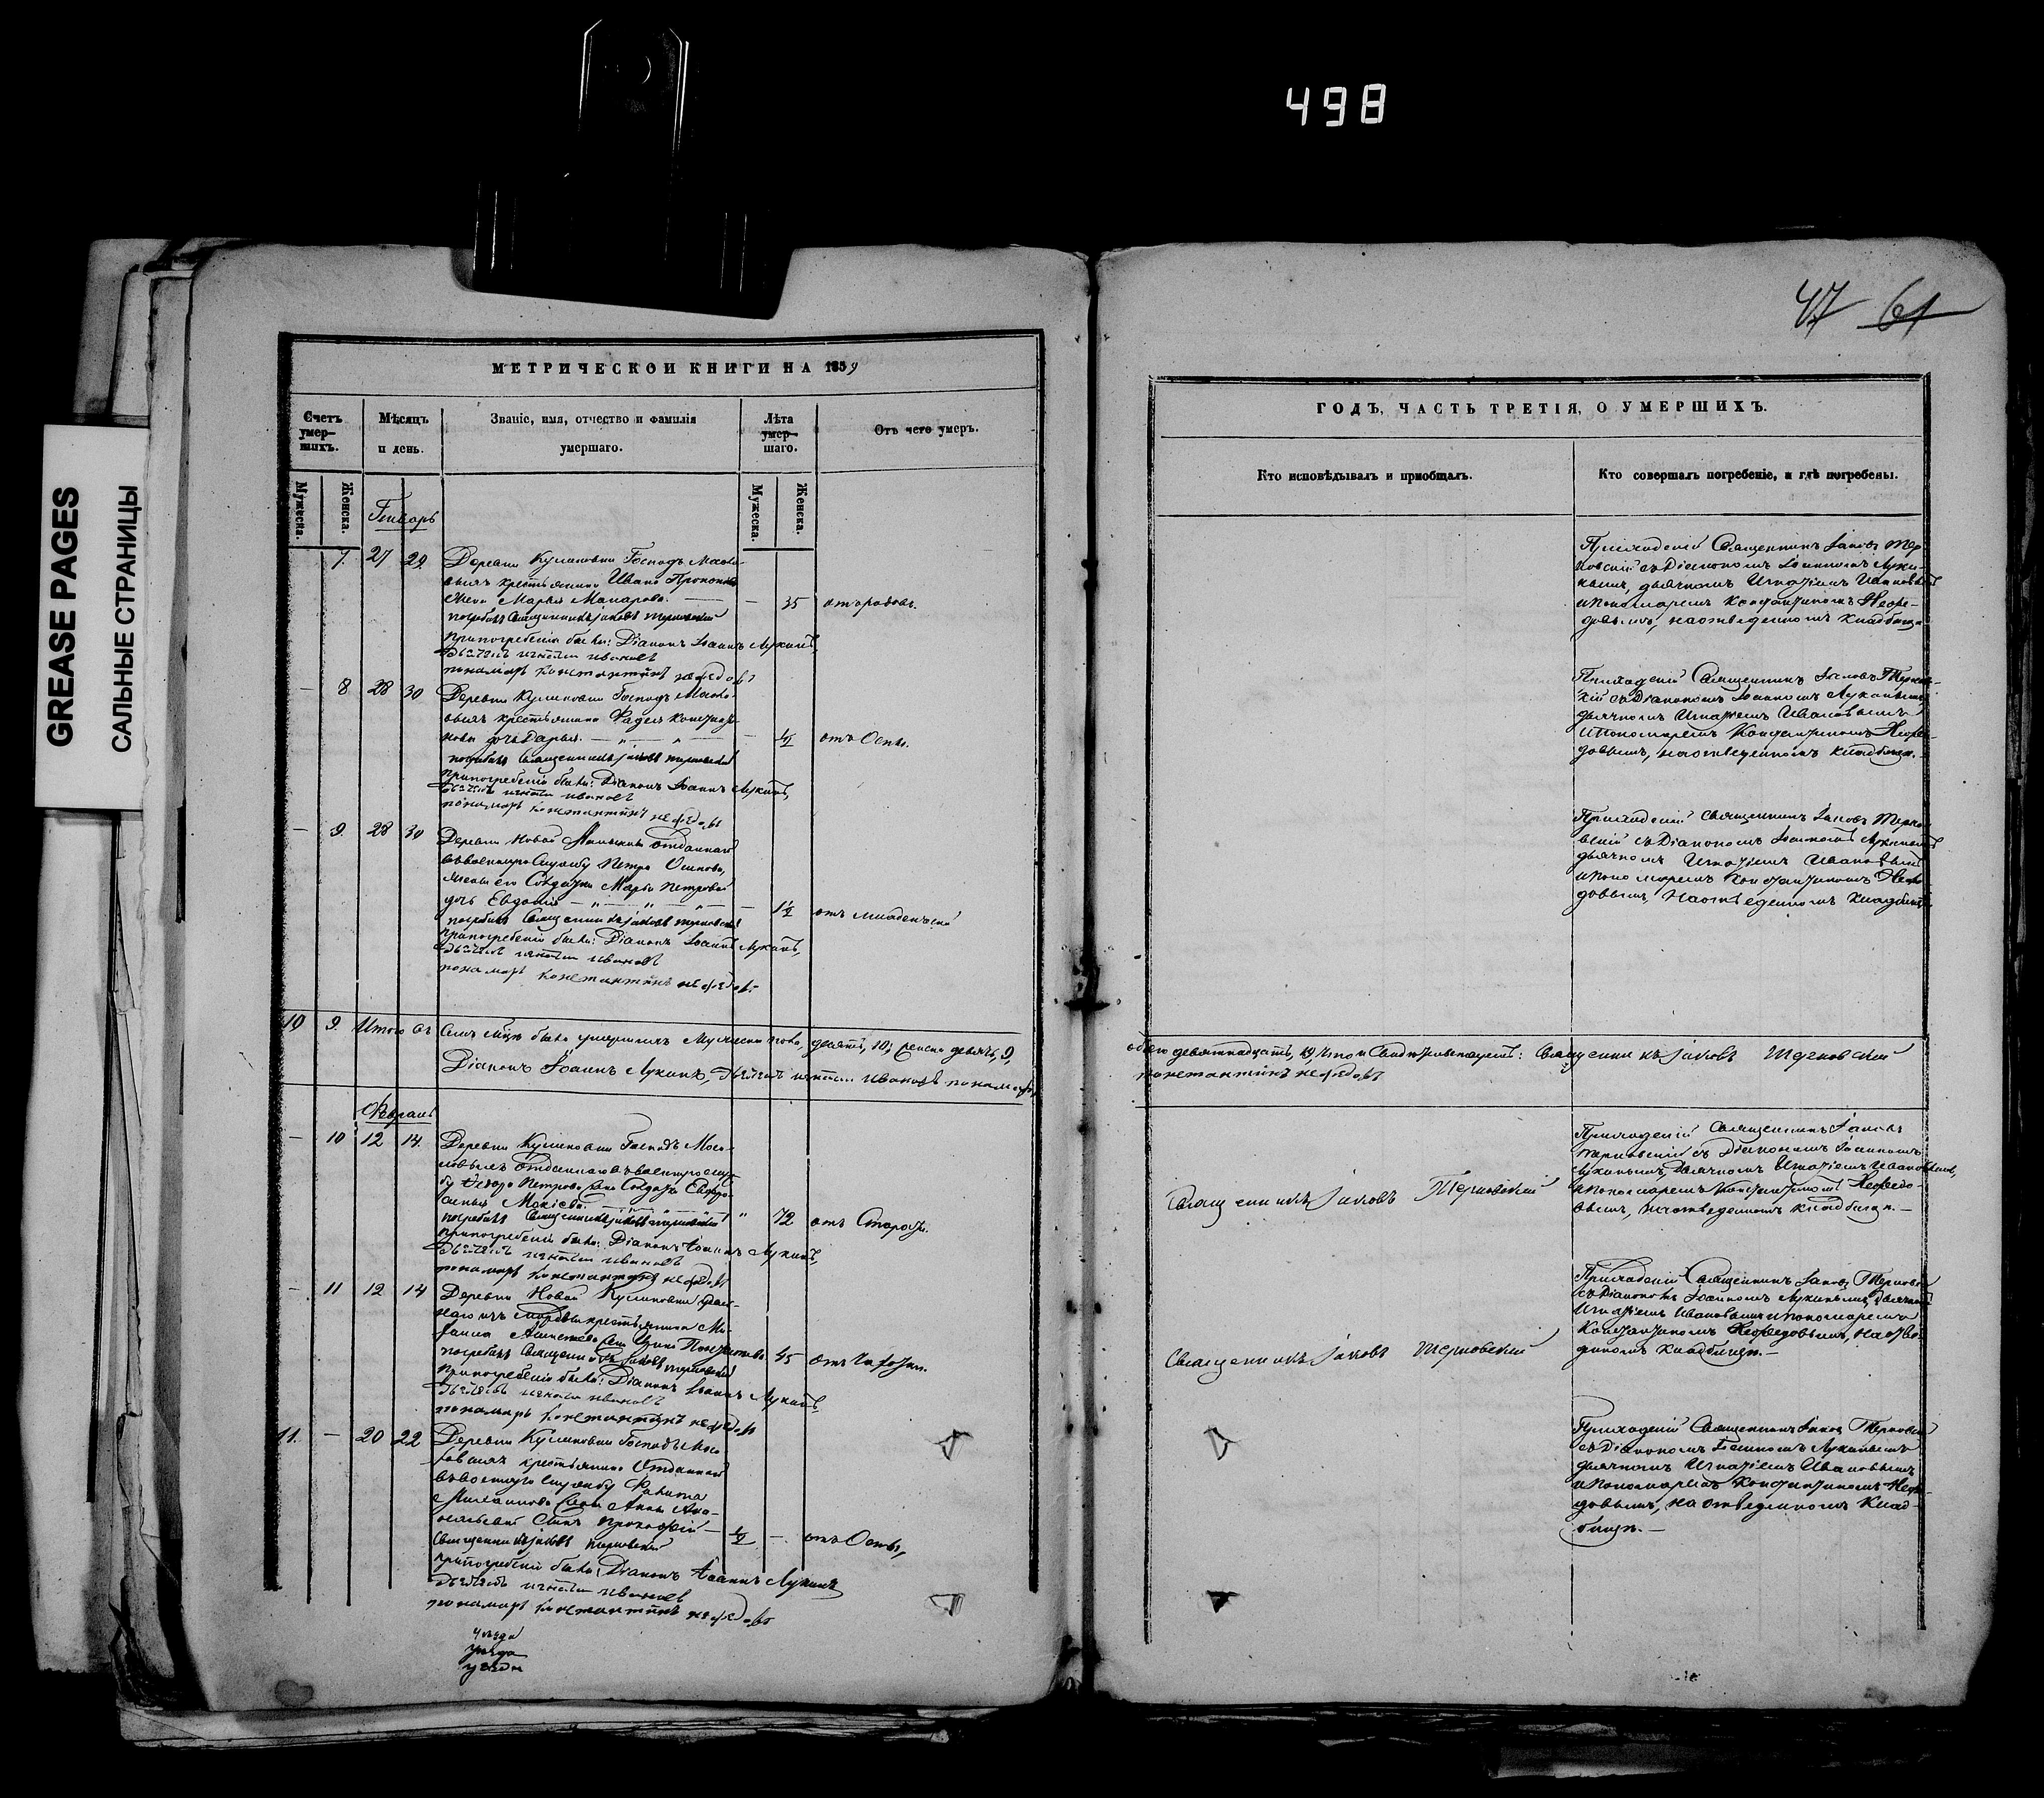 498
GREASE PAGES
САЛЬНЫЕ СТРАНИЦЫ
47 61
МЕТРИЧЕСКОИ КНИГИ НА 1859
Счетъ умер-шихъ.
Мѣсяцъ и день.
Званіе, имя, отчество и фамилія умершаго.
Лѣта умер-шаго.
Отъ чего умеръ.
Мужеска.
Женска.
Мужеска.
Женска.
Генварь
7. 27 29. Деревни Куликовки Господъ
крестьянина Ивана
жена Марья Макарова. — 35 отъ родовъ.
погребалъ Священникъ Іаковъ Терновскій
При погребеніи были: Діаконъ Іоаннъ Лукинъ,
Дьячекъ Игнатій Ивановъ
пономарь Константинъ Нефедовъ
— 8 28 30 Деревни Куликовки Господъ
крестьянина Фадея
дочь Дарья. — отъ Оспы.
погребалъ Священникъ Іаковъ Терновскій
При погребеніи были: Діаконъ Іоаннъ Лукинъ,
Дьячекъ Игнатій Ивановъ
пономарь Константинъ Нефедовъ
— 9. 28 30 Деревни Новой отданнаго
въ военную Службу Петра Осипова,
жены его Солдатки Марьи Петровой
дочь Евдокія — 1½ отъ младенческой
погребалъ Священникъ Іаковъ Терновскій
При погребеніи были: Діаконъ Іоаннъ Лукинъ,
Дьячекъ Игнатій Ивановъ
пономарь Константинъ Нефедовъ
10 9. Итого въ семъ м҃цѣ было умершихъ мужеска пола, десять, 10, женска девять, 9,
Діаконъ Іоаннъ Лукинъ, Дьячекъ Игнатій Ивановъ пономарь
Февраль
— 10 12 14. Деревни Куликовки Господъ
отданнаго въ военную служ-
бу Федора Петрова жена Солдатка
— 72 отъ Старости.
погребалъ Священникъ Іаковъ Терновскій
При погребеніи были: Діаконъ Іоаннъ Лукинъ,
Дьячекъ Игнатій Ивановъ
пономарь Константинъ Нефедовъ
— 11 12 14 Деревни Новой Куликовки
крестьянина
45 отъ Чахотки.
погребалъ Священникъ Іаковъ Терновскій
При погребеніи были: Діаконъ Іоаннъ Лукинъ,
Дьячекъ Игнатій Ивановъ
пономарь Константинъ Нефедовъ
11. — 20 22 Деревни Куликовки Господъ
крестьянина Отданнаго
въ военную Службу
жены Анны
Сынъ Прокофій — отъ Оспы,
Священникъ Іаковъ Терновскій
При погребеніи были: Діаконъ Іоаннъ Лукинъ
Дьячекъ Игнатій Ивановъ
пономарь Константинъ Нефедовъ
уѣзда
ГОДЪ, ЧАСТЬ ТРЕТІЯ, О УМЕРШИХЪ.
Кто исповѣдывалъ и пріобщалъ.
Кто совершалъ погребеніе, и гдѣ погребены.
Приходскій Священникъ Іаковъ Тер-
новскій съ Діакономъ Іоанномъ Луки-
нымъ, дьячкомъ Игнатіемъ Ивановымъ
и пономаремъ Константиномъ Нефе-
довымъ, на отведенномъ кладбищѣ
Приходскій Священникъ Іаковъ Тернов-
скій съ Діакономъ Іоанномъ Лукинымъ
дьячкомъ Игнатіемъ Ивановымъ
и пономаремъ Константиномъ Нефе-
довымъ, на отведенномъ кладбищѣ.
Приходскій священникъ Іаковъ Терно-
вскій съ Діакономъ Іоанномъ Лукинымъ
дьячкомъ Игнатіемъ Ивановымъ
и пономаремъ Константиномъ Нефе-
довымъ, на отведенномъ кладбищѣ
обоего девятнадцать, 19, Священникъ Іаковъ Терновскій
Константинъ Нефедовъ
Священникъ Іаковъ Терновскій
Приходскій Священникъ Іаковъ
Терновскій съ Діакономъ Іоанномъ
Лукинымъ, Дьячкомъ Игнатіемъ Ивановымъ,
и пономаремъ Константиномъ Нефедо-
вымъ, на отведенномъ кладбищѣ.—
Священникъ Іаковъ Терновскій
Приходскій Священникъ Іаковъ Терновскій
съ Діакономъ Іоанномъ Лукинымъ, дьячкомъ
Игнатіемъ Ивановымъ и пономаремъ
Константиномъ Нефедовымъ, на отве-
деномъ кладбищѣ.—
Приходскій Священникъ Іаковъ Терновскій
съ Діакономъ Іоанномъ Лукинымъ
дьячкомъ Игнатіемъ Ивановымъ
и пономаремъ Константиномъ Нефе-
довымъ, на отведенномъ Клад-
бищѣ.—